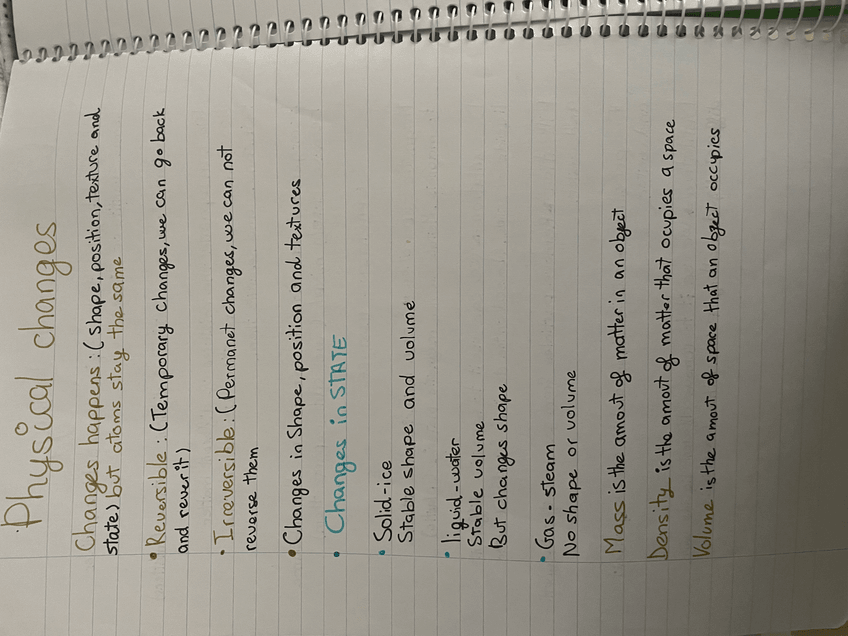 Physical changes
Changes happens: (shape, position, texture and
state) but atoms stay the same
• Reversible: (Temporary changes, we can go back
and rever it)
• Irreversible: (Permanet changes, we can not
reverse them
• Changes in Shape, position and textures
• Changes in STATE
• Solid-ice
Stable shape and volume
• liquid-water
Stable volume
But changes shape
• Gas-steam
No shape or volume
Mass is the amout of matter in an object
Density is the amout of matter that ocupies a space
Volume is the amout of space that an object occupies